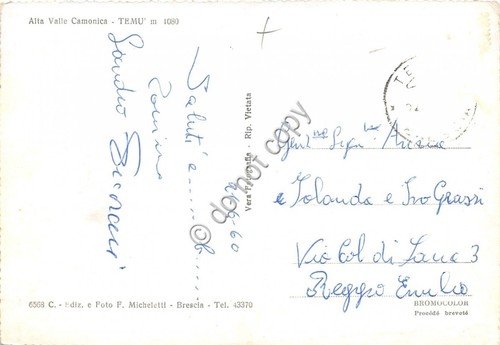 Alta Valle Camonica - TEMU' m 1080
Saluti e......b......
Sandro
20-9-60
Vera Fotografia - Rip. Vietata
do not copy
TE
Gent.me Sign.
e Iolanda e Ivo Grassi
Via Col di Lana 3
Reggio Emilia
6568 C. - Ediz. e Foto F. Micheletti - Brescia - Tel. 43370
BROMOCOLOR
Procédé breveté